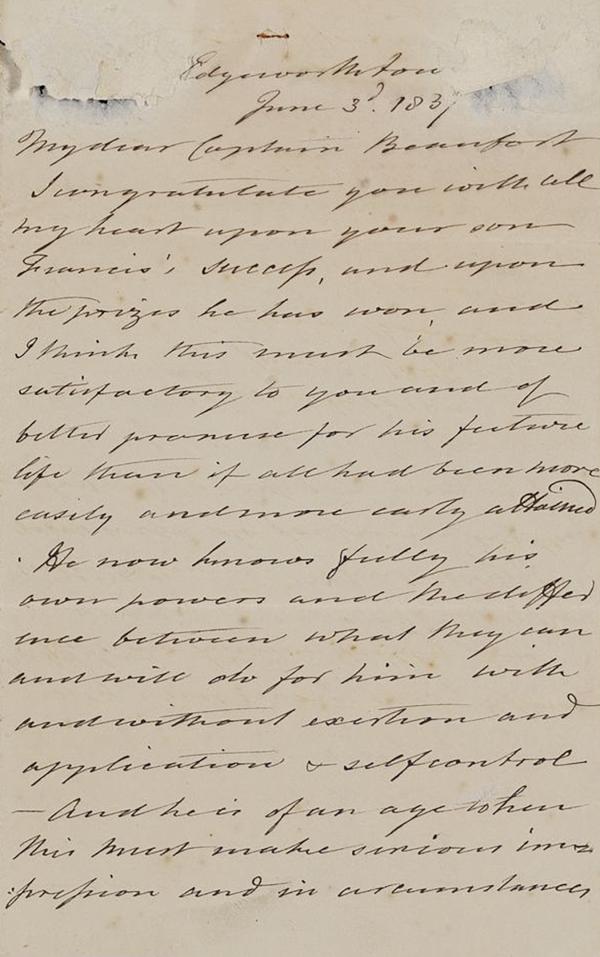 Edgeworthtown
June 3d. 183
My dear Captain Beaufort
I congratulate you with all
my heart upon your son
Francis's success, and upon
the prizes he has won, and
I think this must be more
satisfactory to you and of
better promise for his future
life than if all had been more
easily and more early attained
. He now knows fully his
own powers and the differ
ence between what they can
and will do for him with
and without exertion and
application & self control
— And he is of an age when
this must make serious im=
:pression and in circumstances